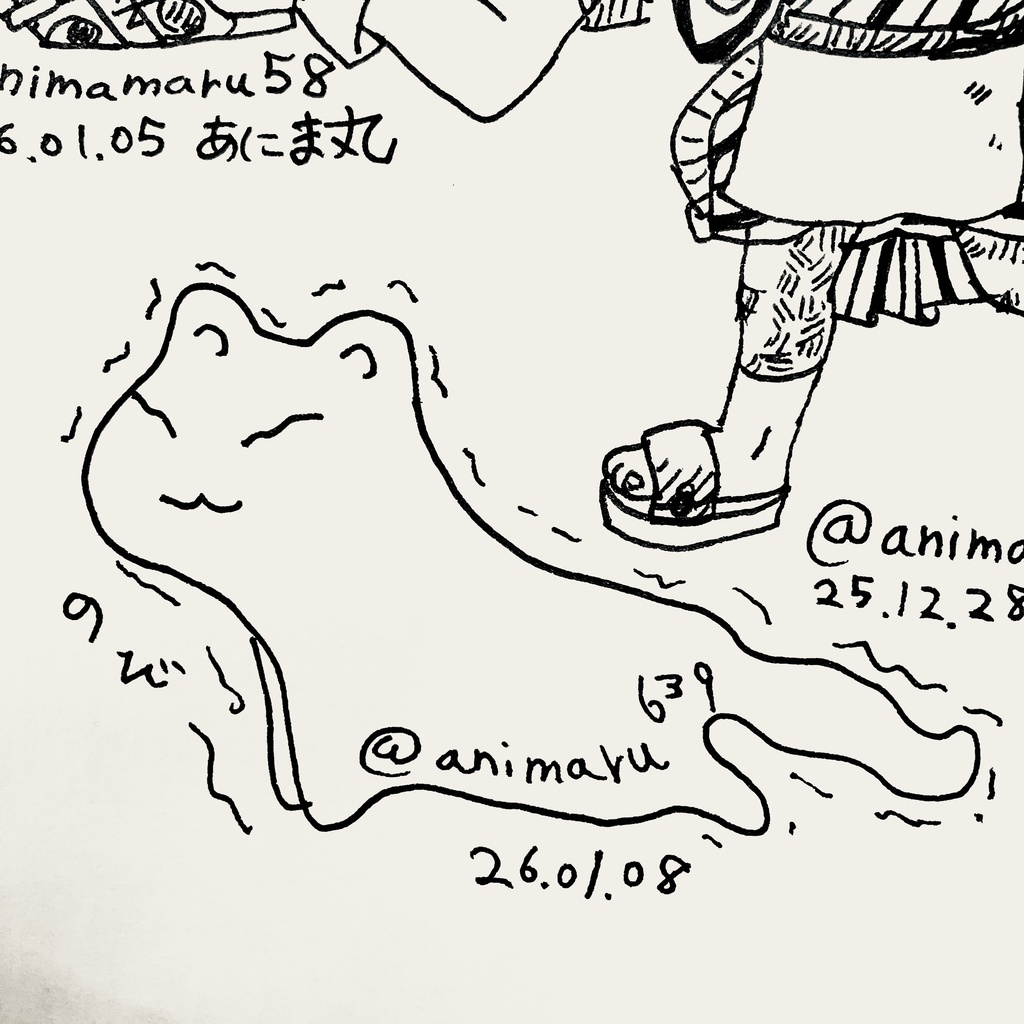 nimamaru58
6.01.05 あにま丸
@anima
25.12.28
のび
639
@animaru
26.01.08